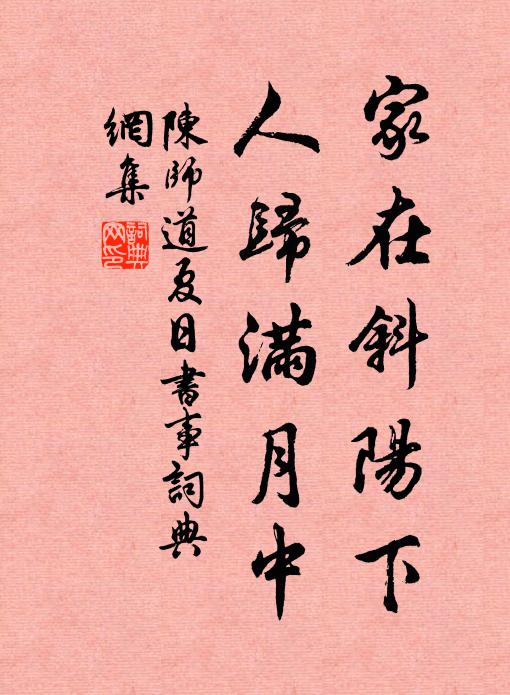 家在斜陽下
人歸滿月中
陳師道夏日書事詞典
網集
詞典
網印